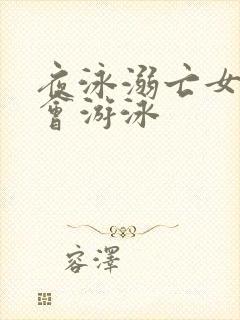 夜泳溺亡女
會游泳
容澤